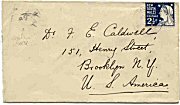 Dr F E Caldwell,
151, Henry Street,
Brooklyn N.Y.
U. S. America